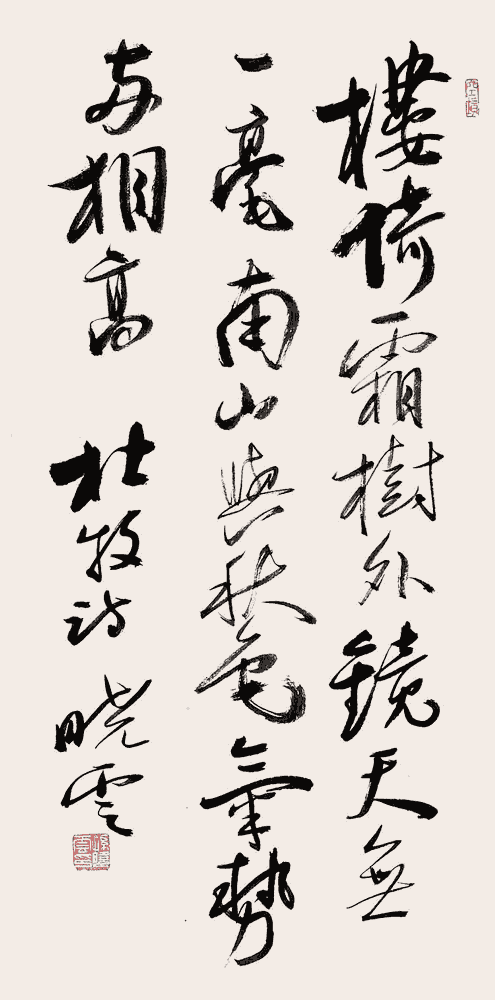 樓倚霜樹外鏡天無
一毫南山與秋色氣勢
兩相高 杜牧诗 晓雲